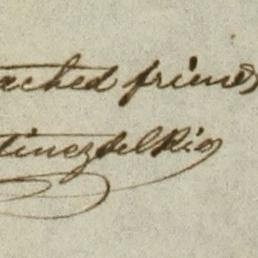 ached friend
tinezdelRio